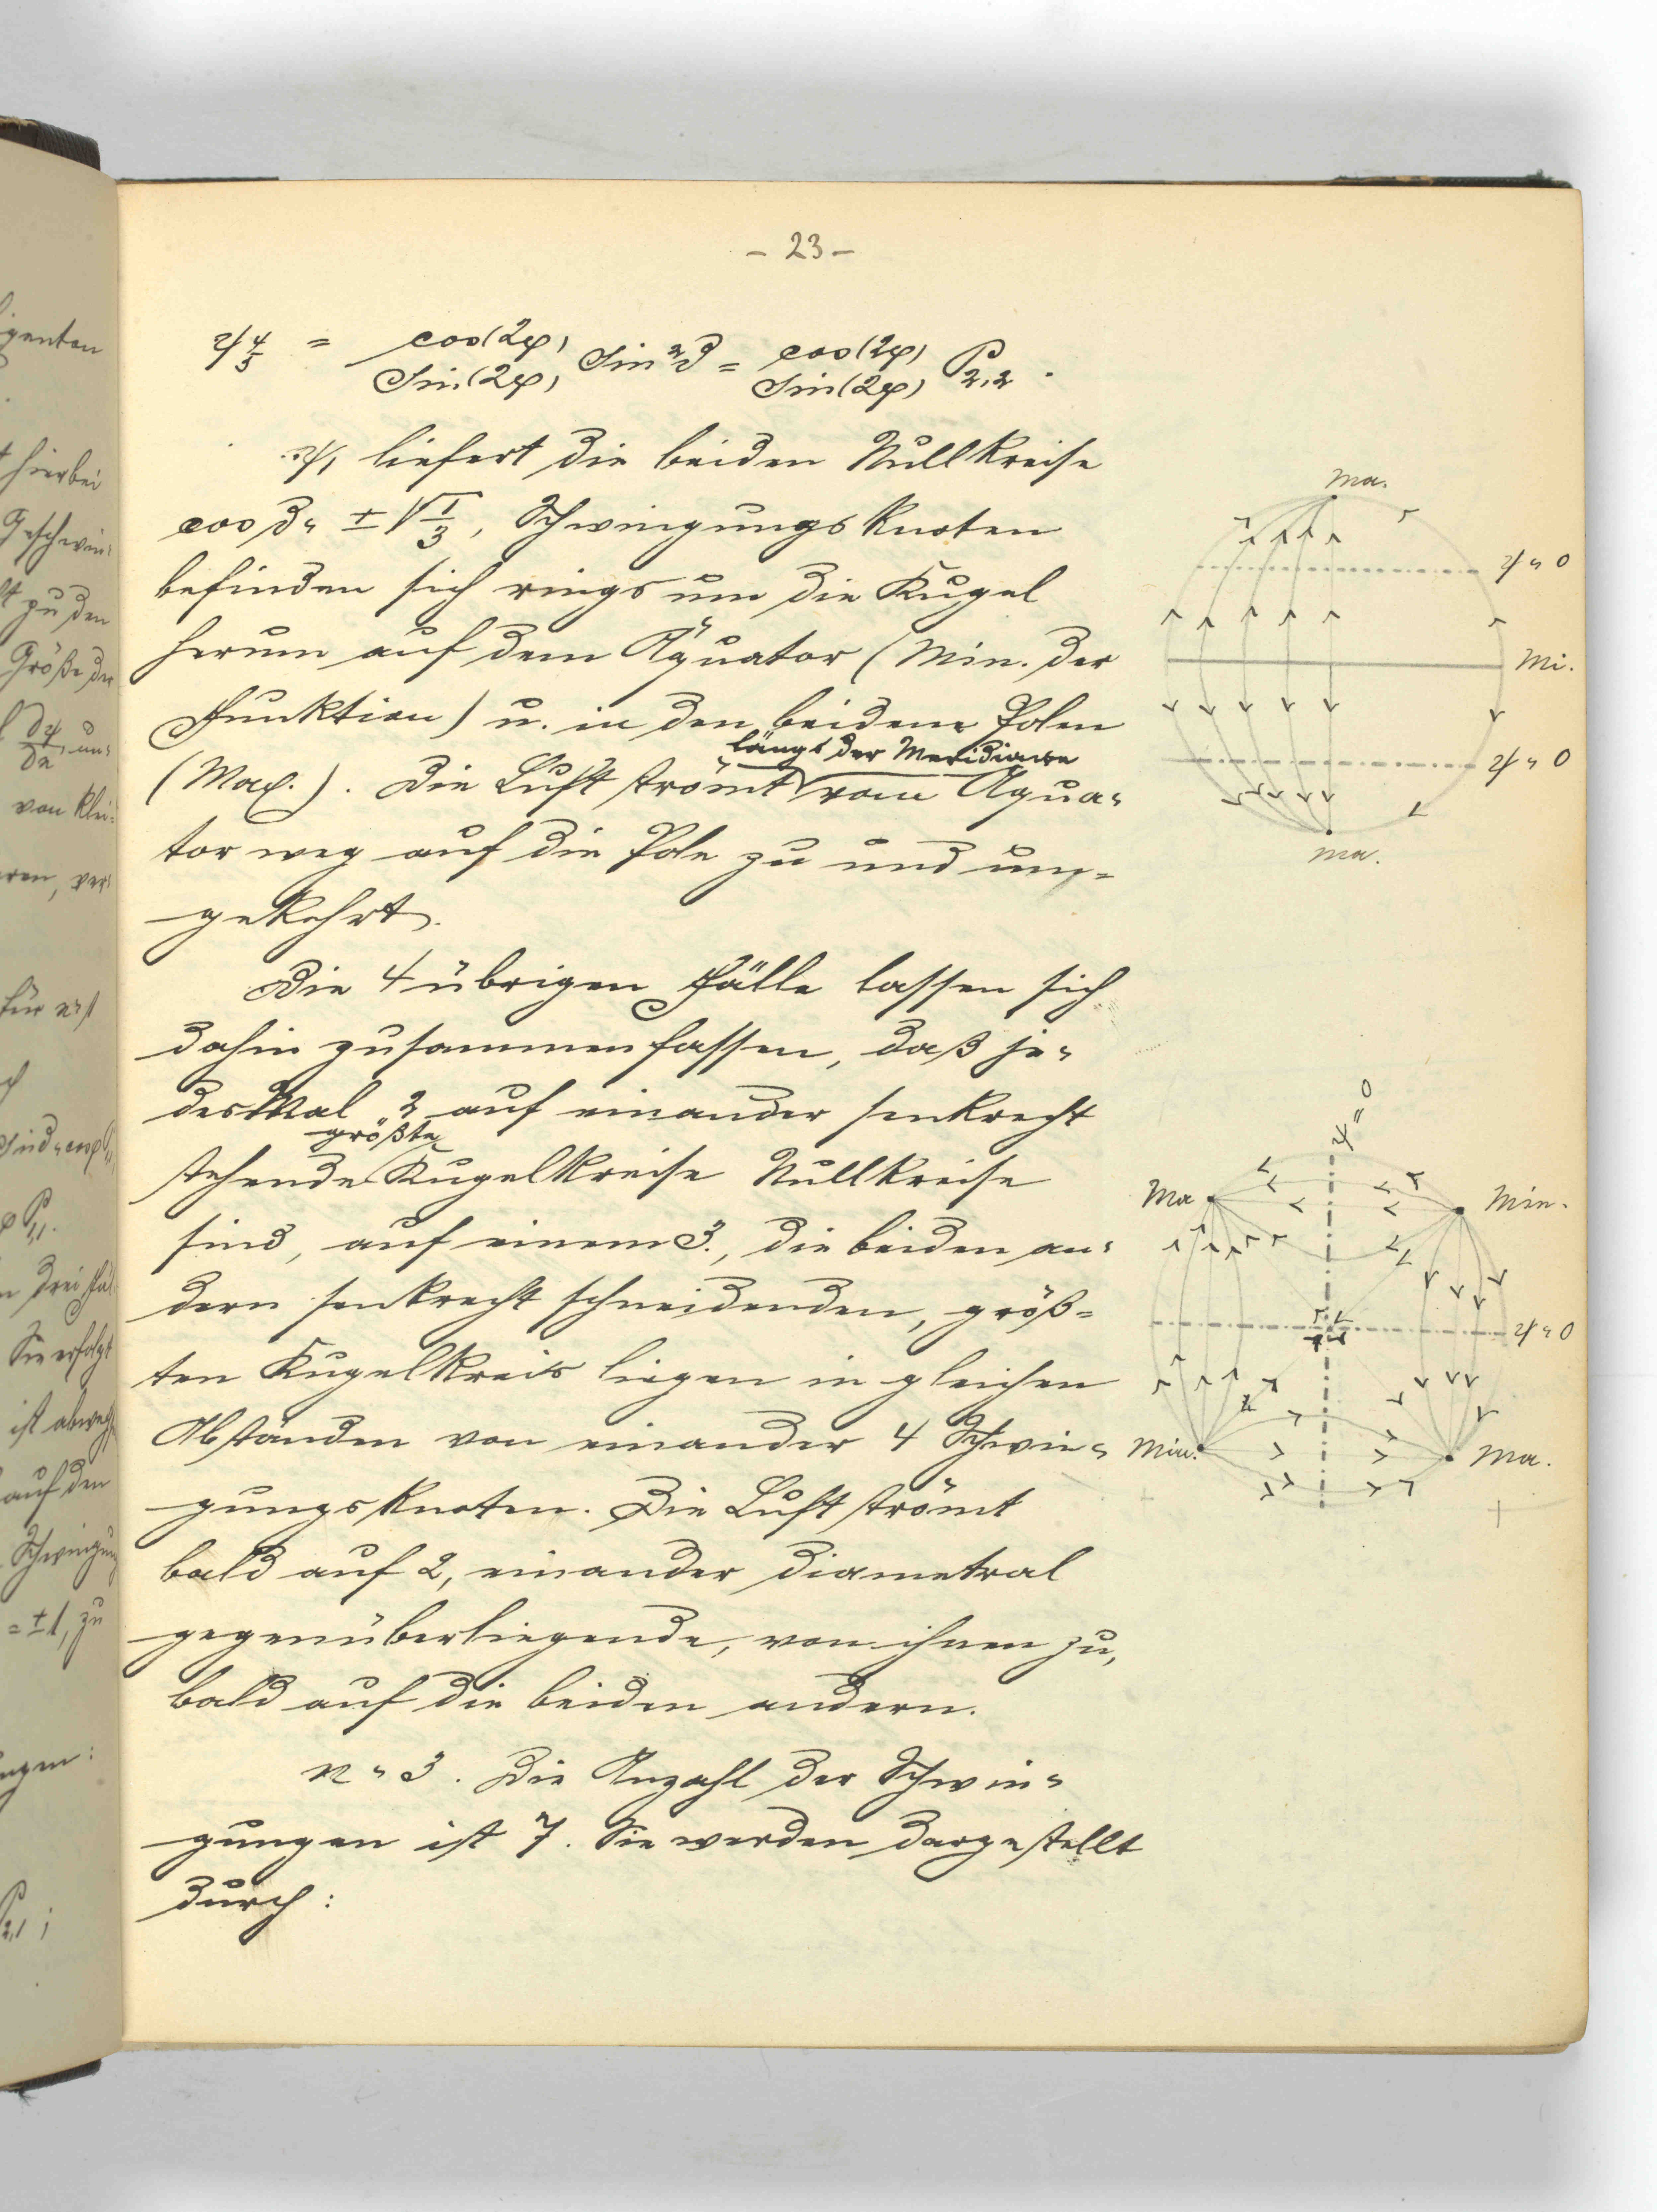 - 23 -
ψ 4/5 = cos(2φ)/sin(2φ) sin²ϑ = cos(2φ)/sin(2φ) P2,2.
ψ1 liefert die beiden Nullkreise
cos ϑ = ±√1/3, Schwingungsknoten
befinden sich rings um die Kugel
herum auf dem Äquator (Min. der
Funktion) u. in den beiden Polen
längs der Meridiane
(Max.). Die Luft strömt vom Äqua=
tor weg auf die Pole zu und um=
gekehrt.
Die 4 übrigen Fälle lassen sich
dahin zusammenfassen, daß je=
desmal 2 auf einander senkrecht
größte
stehende Kugelkreise Nullkreise
sind, auf einem 3., die beiden an=
dern senkrecht schneidenden, größ=
ten Kugelkreis liegen in gleichen
Abständen von einander 4 Schwin=
gungsknoten. Die Luft strömt
bald auf 2, einander diametral
gegenüberliegende, von ihnen zu,
bald auf die beiden andern.
n = 3. Die Anzahl der Schwin=
gungen ist 7. Sie werden dargestellt
durch:
Ma.
ψ = 0
Mi.
ψ = 0
Ma.
ψ = 0
Ma
Min.
ψ = 0
Min.
Ma.
igenten
hierbei
Geschwin=
zu den
Größe der
dψ un=
von klei=
ren, ver=
für n=1
P1,1.
drei Fäl
Sie erfolgt
ist abwech
auf den
Schwingung
= ±1, zu
ngen:
P2,1;